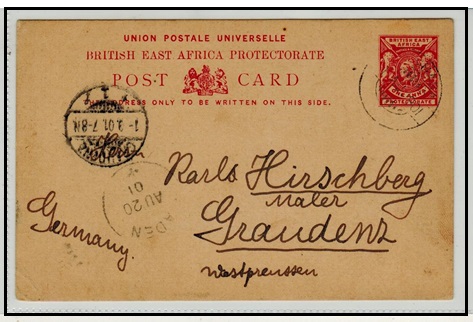 UNION POSTALE UNIVERSELLE
BRITISH EAST AFRICA PROTECTORATE
POST CARD
THE ADDRESS ONLY TO BE WRITTEN ON THIS SIDE.
BRITISH EAST AFRICA
ONE ANNA
PROTECTORATE
1-9.01.7-8N.
ADEN
AU 20
01
Karls Hirschberg
Maler
Graudenz
Westpreussen
Germany.